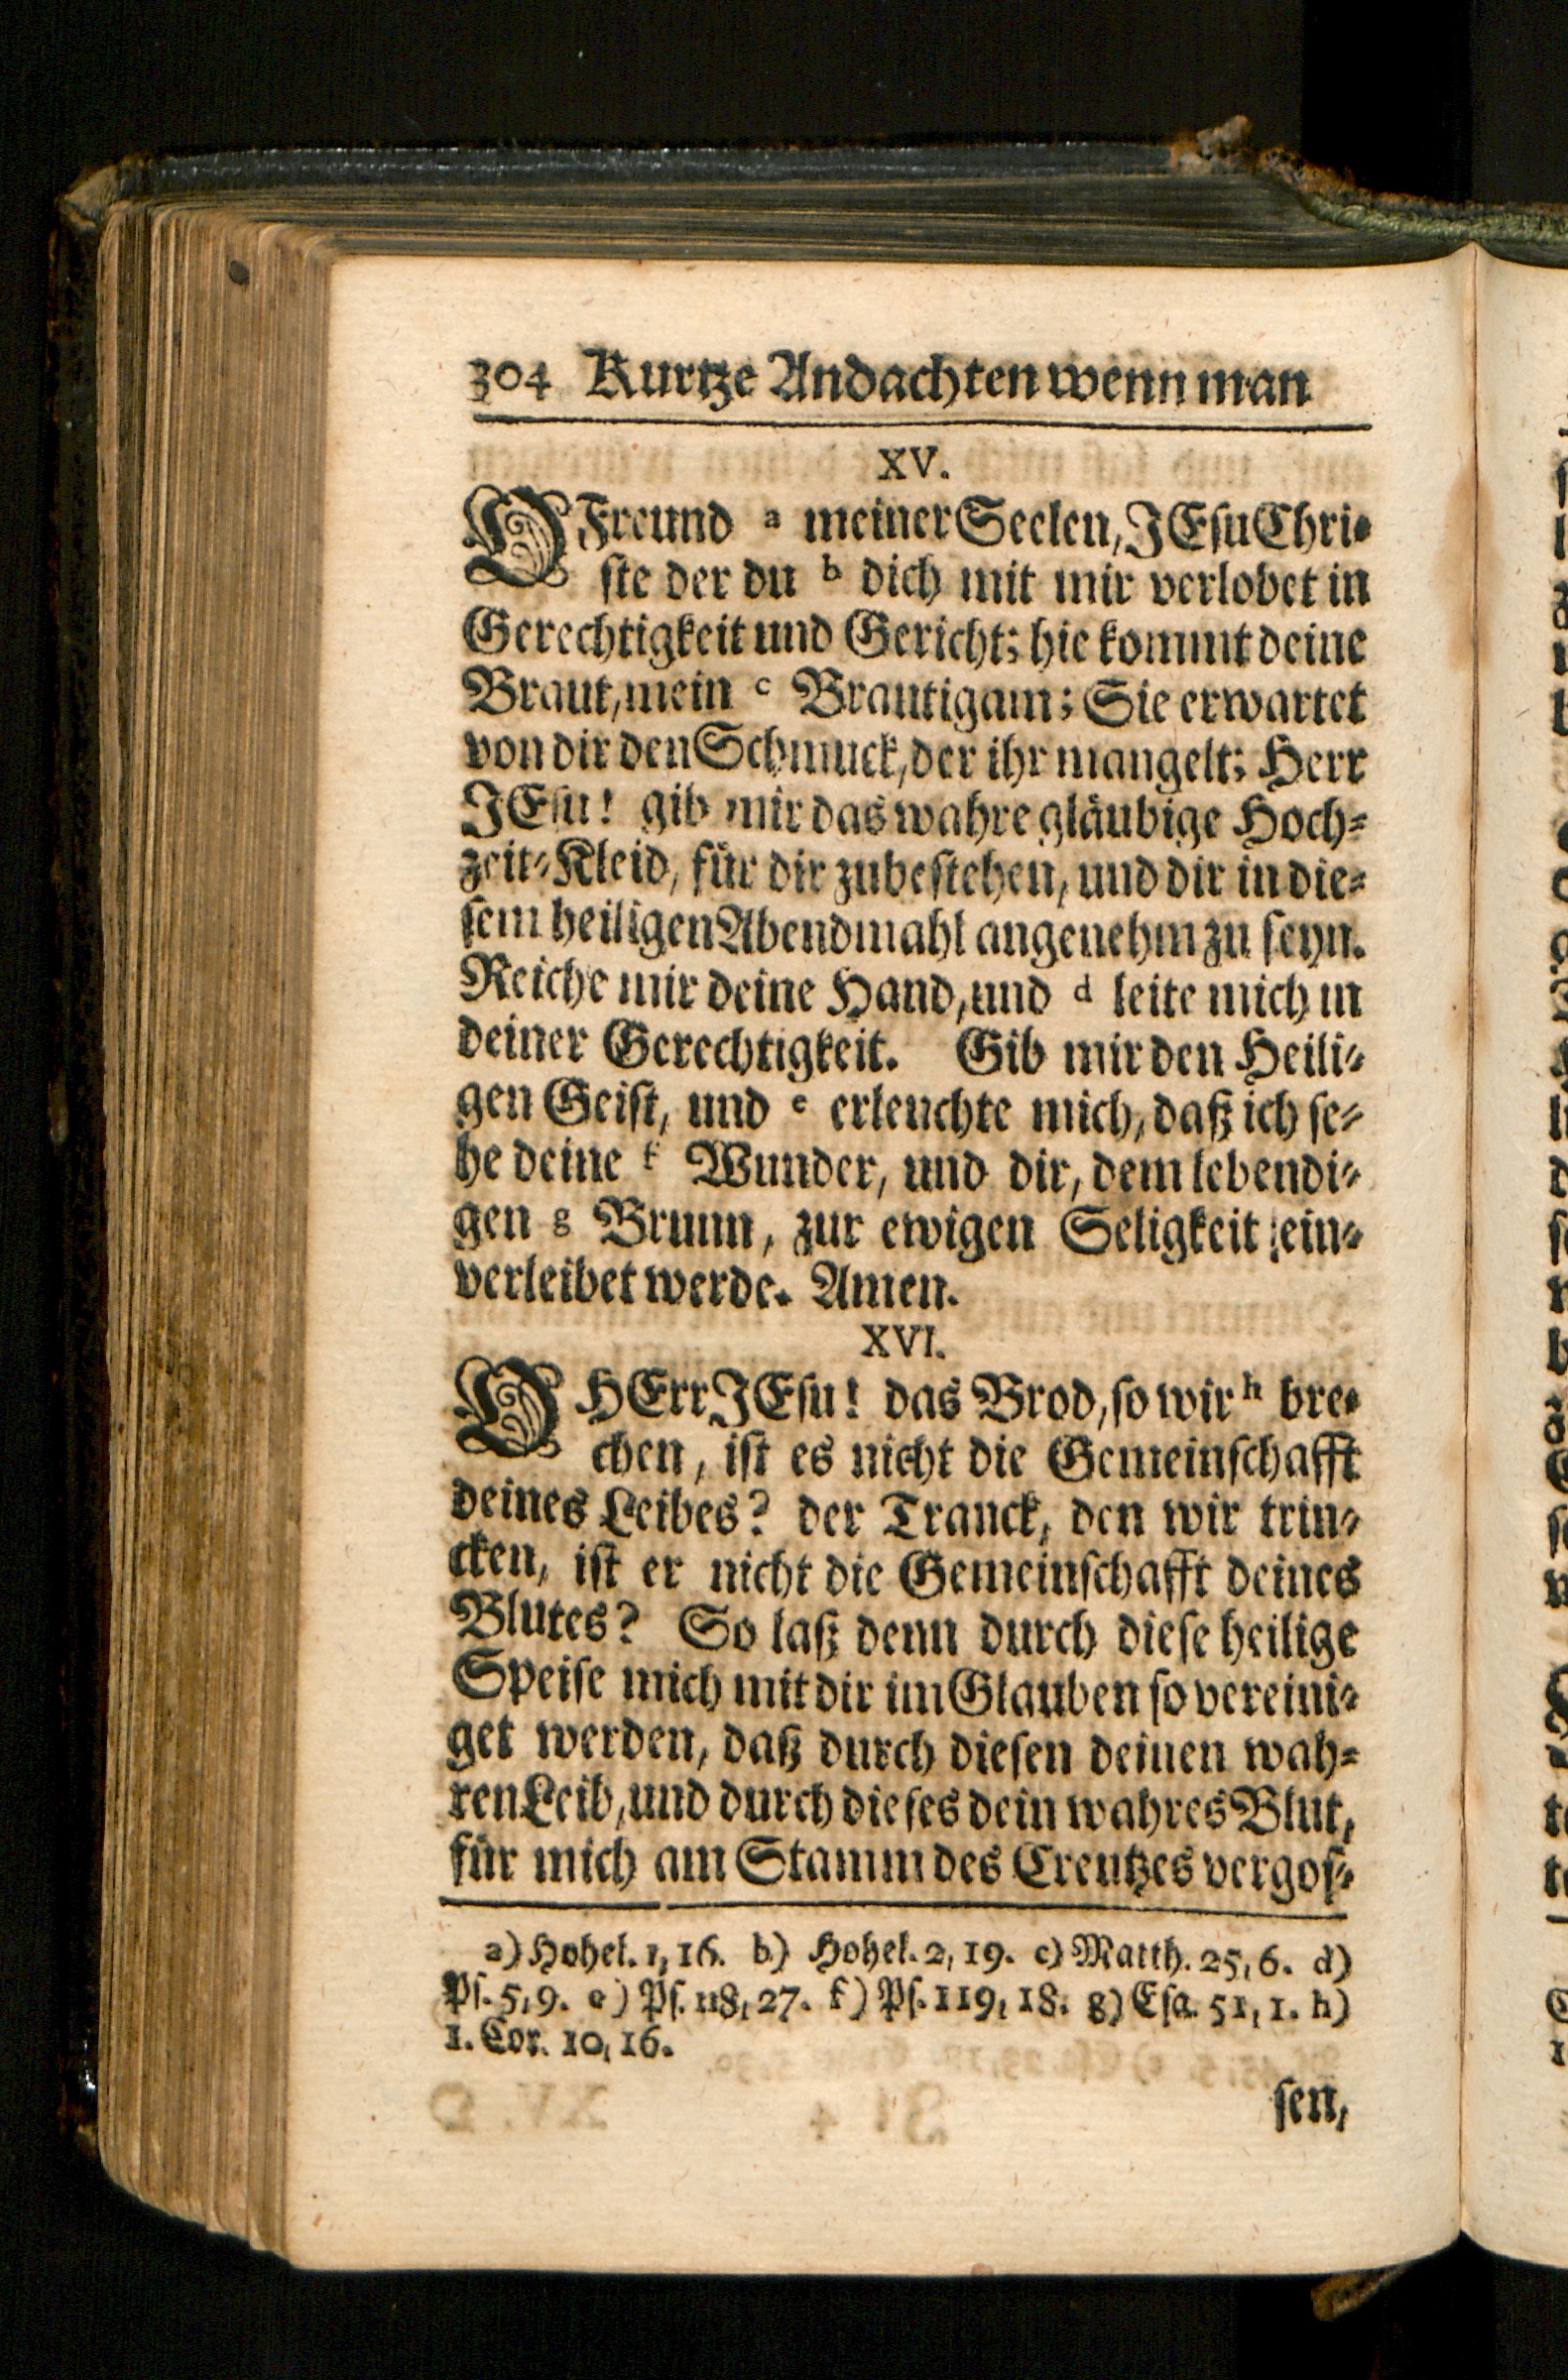 304 Kurtze Andachten wenn man
XV.
O Freund a meiner Seelen, JEsu Chri-
ste der du b dich mit mir verlobet in
Gerechtigkeit und Gericht; hie kommt deine
Braut, mein c Brautigam; Sie erwartet
von dir den Schmuck, der ihr mangelt; Herr
JEsu! gib mir das wahre gläubige Hoch-
zeit-Kleid, für dir zubestehen, und dir in die-
sem heiligen Abendmahl angenehm zu seyn.
Reiche mir deine Hand, und d leite mich in
deiner Gerechtigkeit. Gib mir den Heili-
gen Geist, und e erleuchte mich, daß ich se-
he deine f Wunder, und dir, dem lebendi-
gen g Brunn, zur ewigen Seligkeit ein-
verleibet werde. Amen.
XVI.
O HErr JEsu! das Brod, so wir h bre-
chen, ist es nicht die Gemeinschafft
deines Leibes? der Tranck, den wir trin-
cken, ist er nicht die Gemeinschafft deines
Blutes? So laß denn durch diese heilige
Speise mich mit dir im Glauben so vereini-
get werden, daß durch diesen deinen wah-
ren Leib, und durch dieses dein wahres Blut,
für mich am Stamm des Creutzes vergos-
a) Hohel. 1, 16. b) Hohel. 2, 19. c) Matth. 25, 6. d)
Ps. 5, 9. e) Ps. 118, 27. f) Ps. 119, 18. g) Esa. 51, 1. h)
1. Cor. 10, 16.
sen,